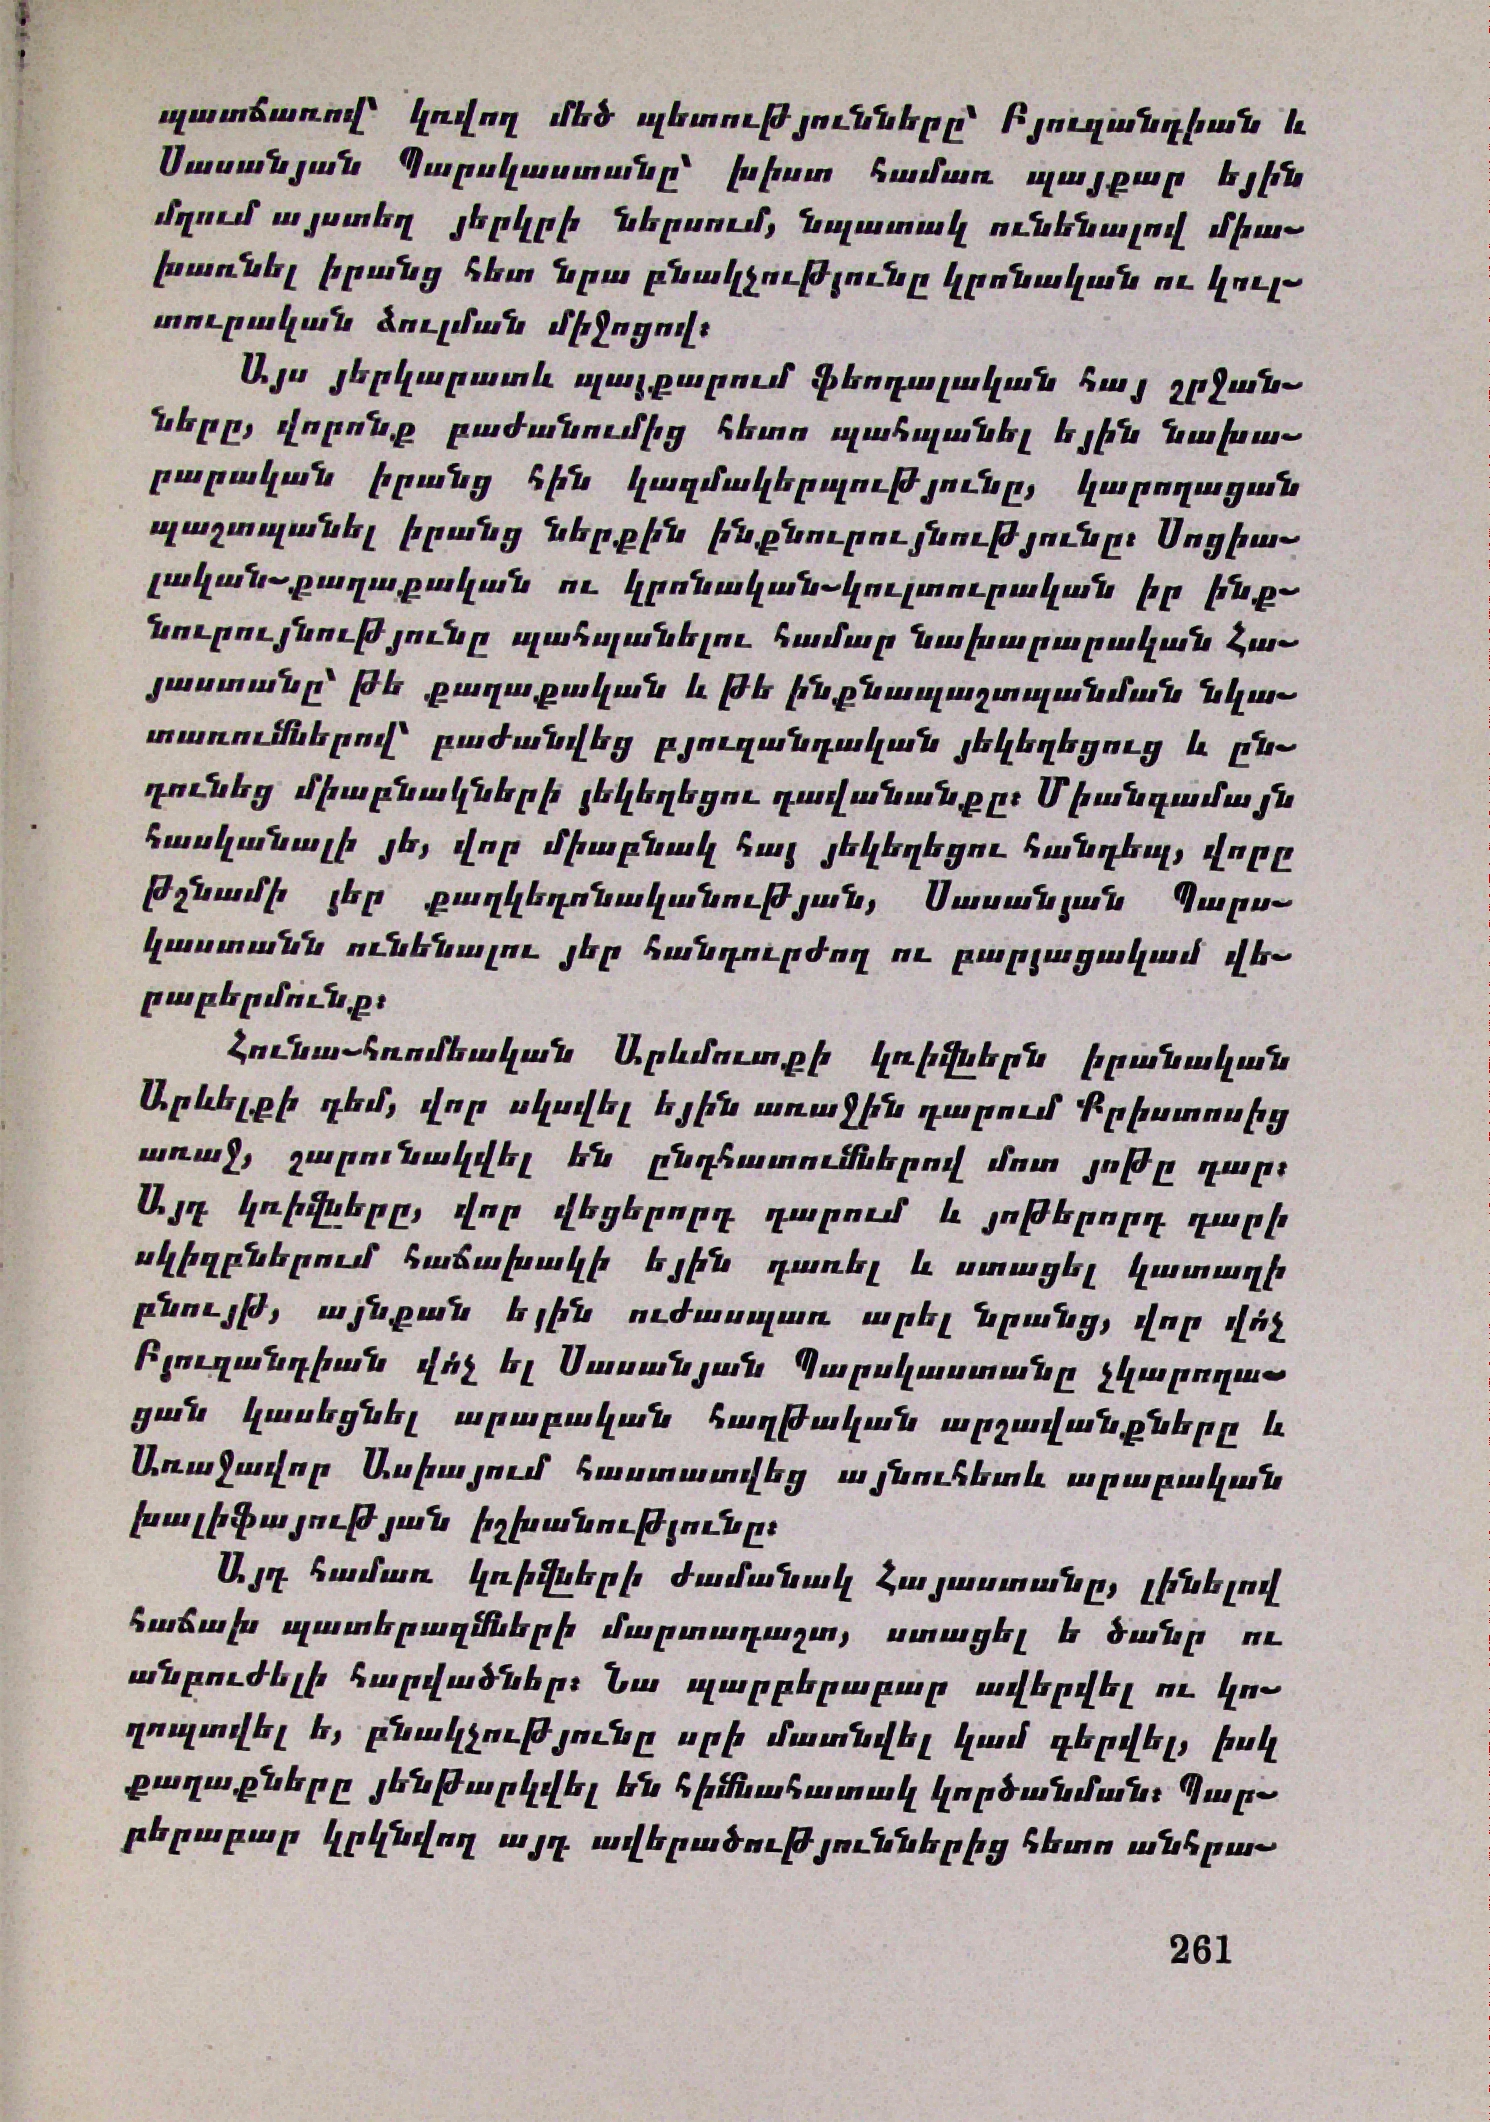 պատճառով՝ կռվող մեծ պետությունները՝ Բյուզանդիան և
Սասանյան Պարսկաստանը՝ խիստ համառ պայքար եյին
մղում այստեղ յերկրի ներսում, նպատակ ունենալով միա֊
խառնել իրանց հետ նրա բնակչությունը կրոնական ու կուլ֊
տուրական ձուլման միջոցով։
Այս յերկարատև պայքարում ֆեոդալական հայ շրջան֊
ները, վորոնք բաժանումից հետո պահպանել եյին նախա֊
րարական իրանց հին կազմակերպությունը, կարողացան
պաշտպանել իրանց ներքին ինքնուրույնությունը։ Սոցիա֊
լական֊քաղաքական ու կրոնական֊կուլտուրական իր ինք֊
նուրույնությունը պահպանելու համար նախարարական Հա֊
յաստանը՝ թե քաղաքական և թե ինքնապաշտպանման նկա֊
տառումներով՝ բաժանվեց բյուզանդական յեկեղեցուց և ըն֊
դունեց միաբնակների յեկեղեցու դավանանքը։ Միանգամայն
հասկանալի յե, վոր միաբնակ հայ յեկեղեցու հանդեպ, վորը
թշնամի յեր քաղկեդոնականության, Սասանյան Պարս֊
կաստանն ունենալու յեր հանդուրժող ու բարյացակամ վե֊
րաբերմունք։
Հունա֊հռոմեական Արևմուտքի կռիվներն իրանական
Արևելքի դեմ, վոր սկսվել եյին առաջին դարում Քրիստոսից
առաջ, շարունակվել են ընդհատումներով մոտ յոթը դար։
Այդ կռիվները, վոր վեցերորդ դարում և յոթերորդ դարի
սկիզբներում հաճախակի եյին դառել և ստացել կատաղի
բնույթ, այնքան եյին ուժասպառ արել նրանց, վոր վո՛չ
Բյուզանդիան վո՛չ ել Սասանյան Պարսկաստանը չկարողա֊
ցան կասեցնել արաբական հաղթական արշավանքները և
Առաջավոր Ասիայում հաստատվեց այնուհետև արաբական
խալիֆայության իշխանությունը։
Այդ համառ կռիվների ժամանակ Հայաստանը, լինելով
հաճախ պատերազմների մարտադաշտ, ստացել ե ծանր ու
անբուժելի հարվածներ։ Նա պարբերաբար ավերվել ու կո֊
ղոպտվել ե, բնակչությունը սրի մատնվել կամ գերվել, իսկ
քաղաքները յենթարկվել են հիմնահատակ կործանման։ Պար֊
բերաբար կրկնվող այդ ավերածություններից հետո անհրա֊
261